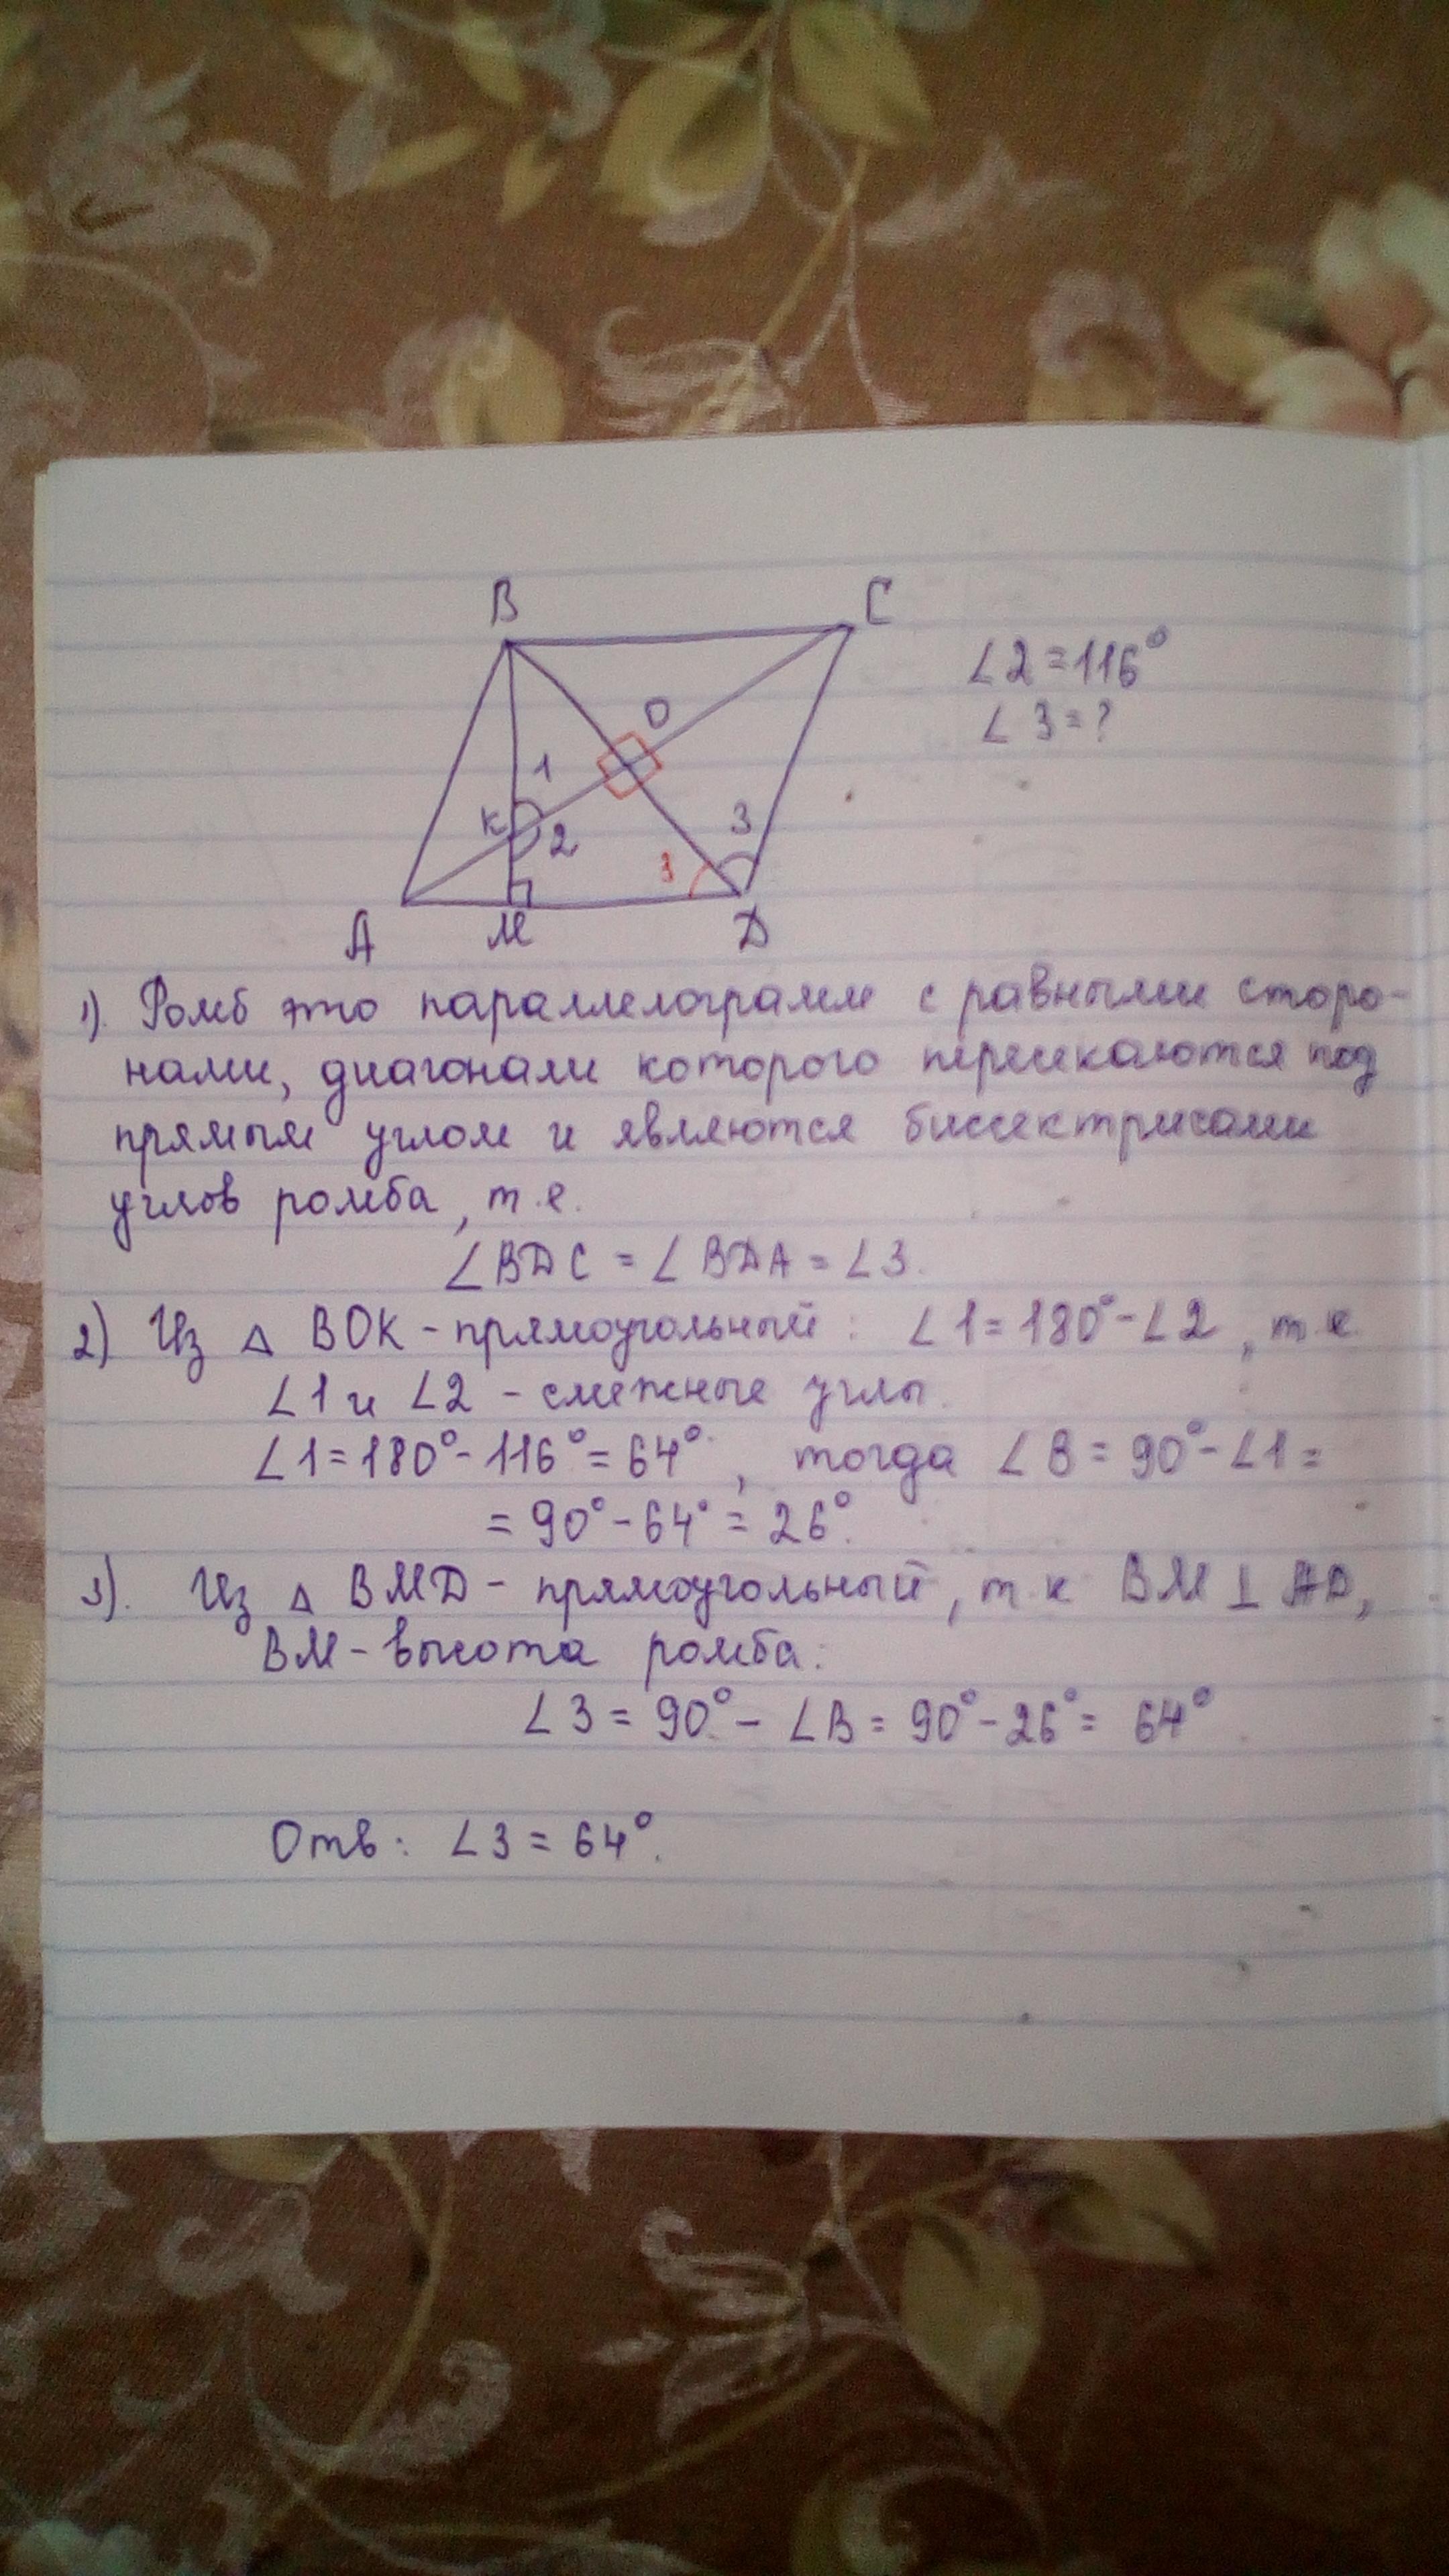 B
C
∠2=116°
∠3=?
O
1
K
2
3
3
A
M
D
1). Ромб это параллелограмм с равными сторо-
нами, диагонали которого пересекаются под
прямым углом и являются биссектрисами
углов ромба, т.е.
∠BDC = ∠BDA = ∠3.
2) Из △ BOK - прямоугольный: ∠1=180°-∠2, т.к.
∠1 и ∠2 - смежные углы.
∠1=180°-116°=64°, тогда ∠B = 90°-∠1=
= 90°-64° = 26°.
3). Из △ BMD - прямоугольный, т.к BM ⊥ AD,
BM - высота ромба:
∠3 = 90° - ∠B = 90°-26° = 64°.
Отв: ∠3 = 64°.